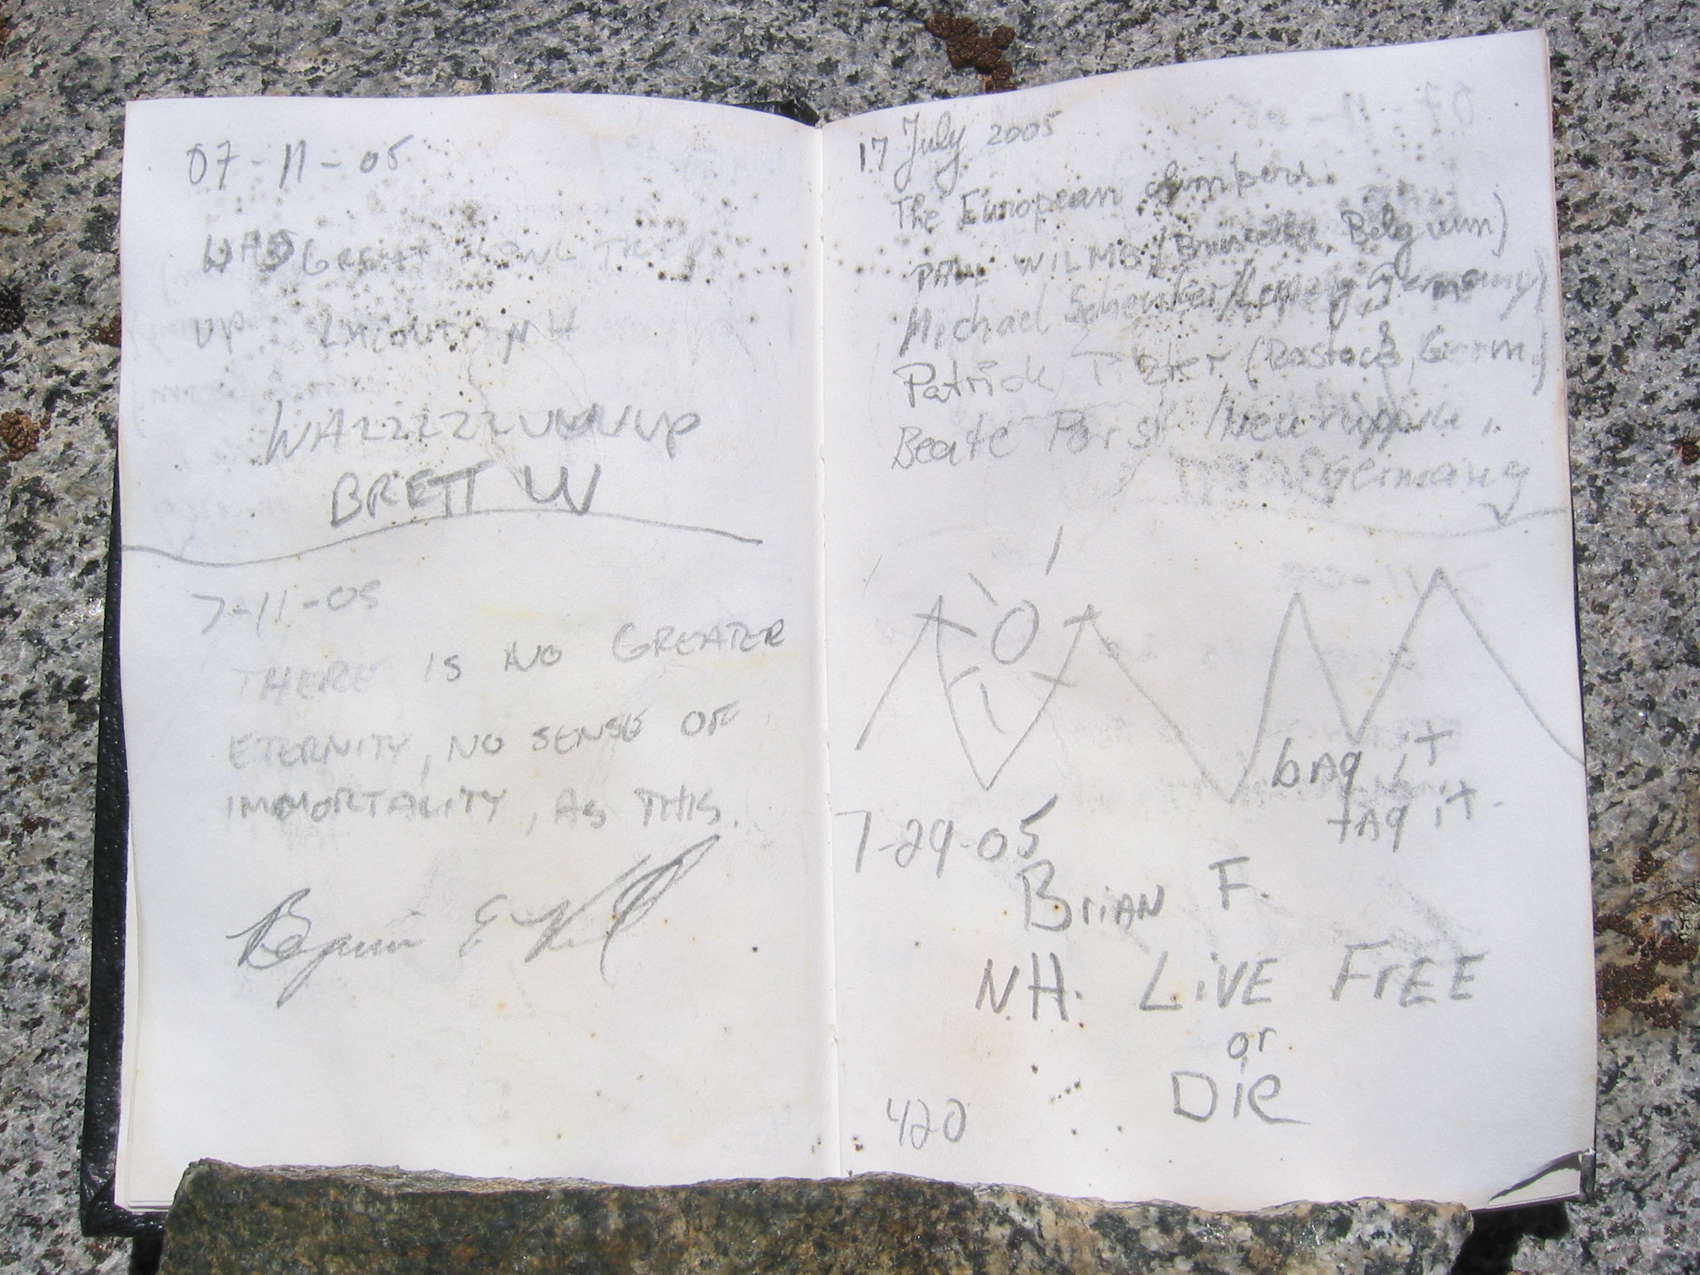 07-11-05
WAS GREAT LONG TRIP
UP
WAZZZZZUUUUP
BRETT W
7-11-05
THERE IS NO GREATER
ETERNITY, NO SENSE OF
IMMORTALITY, AS THIS.
17 July 2005
The European climbers
PAUL WILMS (Brussels, Belgium)
Michael Germany)
Patrick (Rostock, Germ.)
Beate
Germany
bAg iT
tAg iT.
7-29-05
BriAN F.
N.H. LiVE FrEE
or
DiE
420